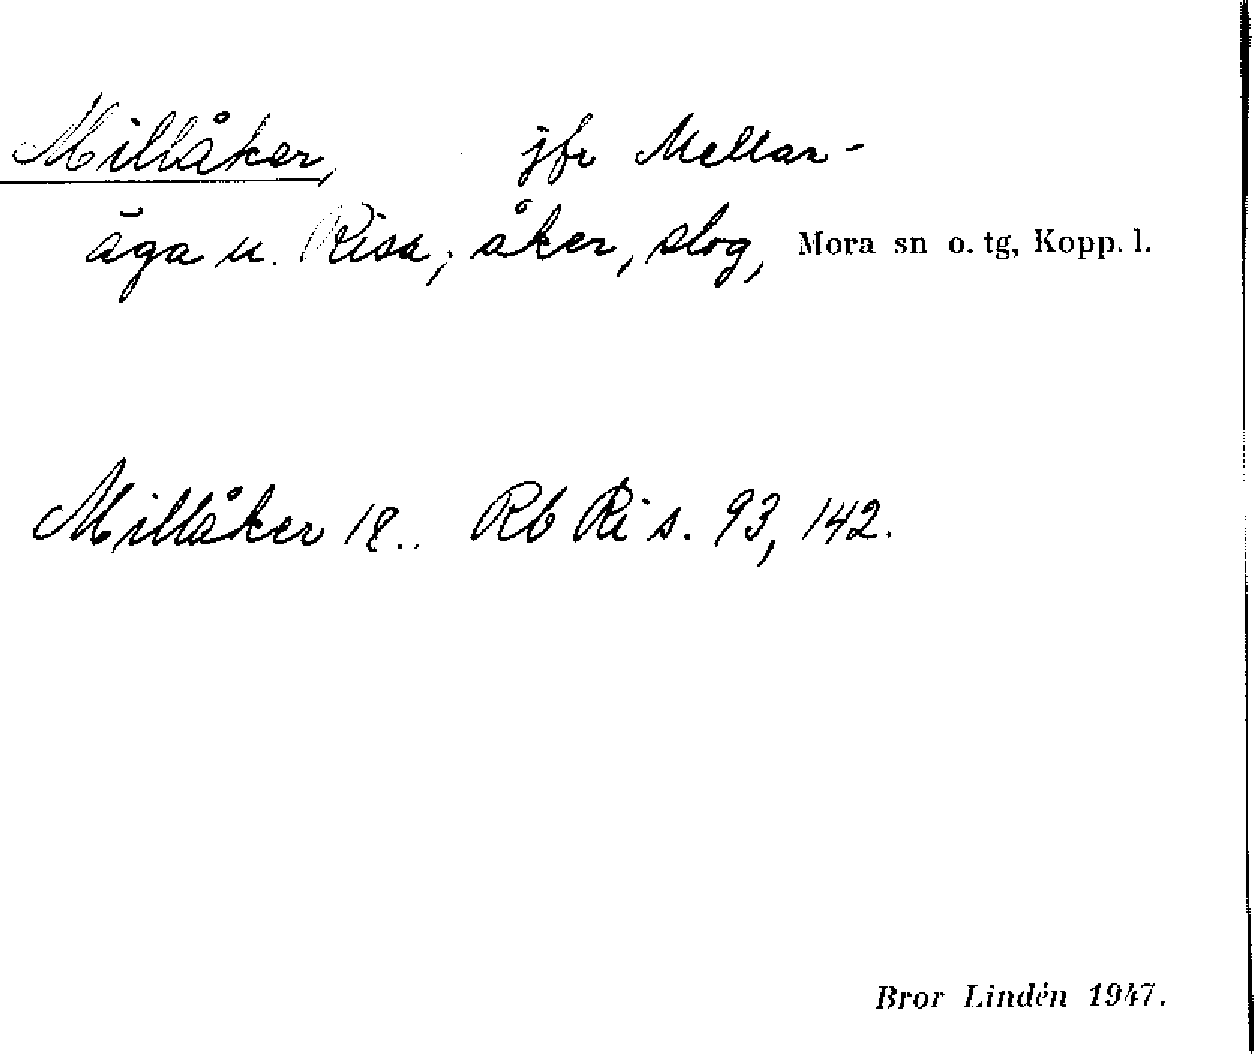 Millåker, jfr Mellan-
äga u. Risa, åker, slog, Mora sn o. tg, Kopp. l.
Millåker 18.. Rb Ri s. 93, 142.
Bror Lindén 1947.